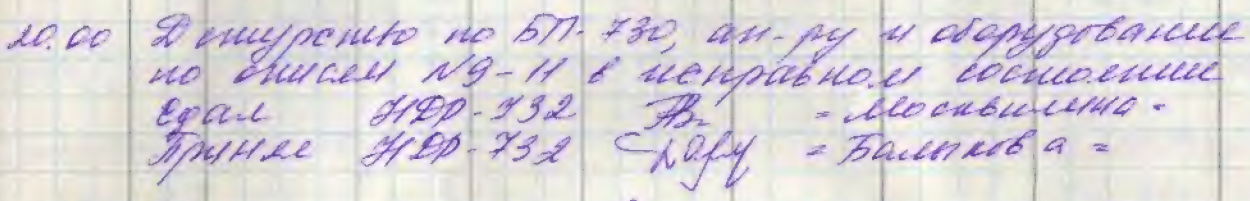 20.00 Дежурство по БП-730, ап-ру и оборудование
по описям №9-11 в исправном состоянии
сдал НДР-732 =Москвитина=
Принял НДР-732 =Балыкова=